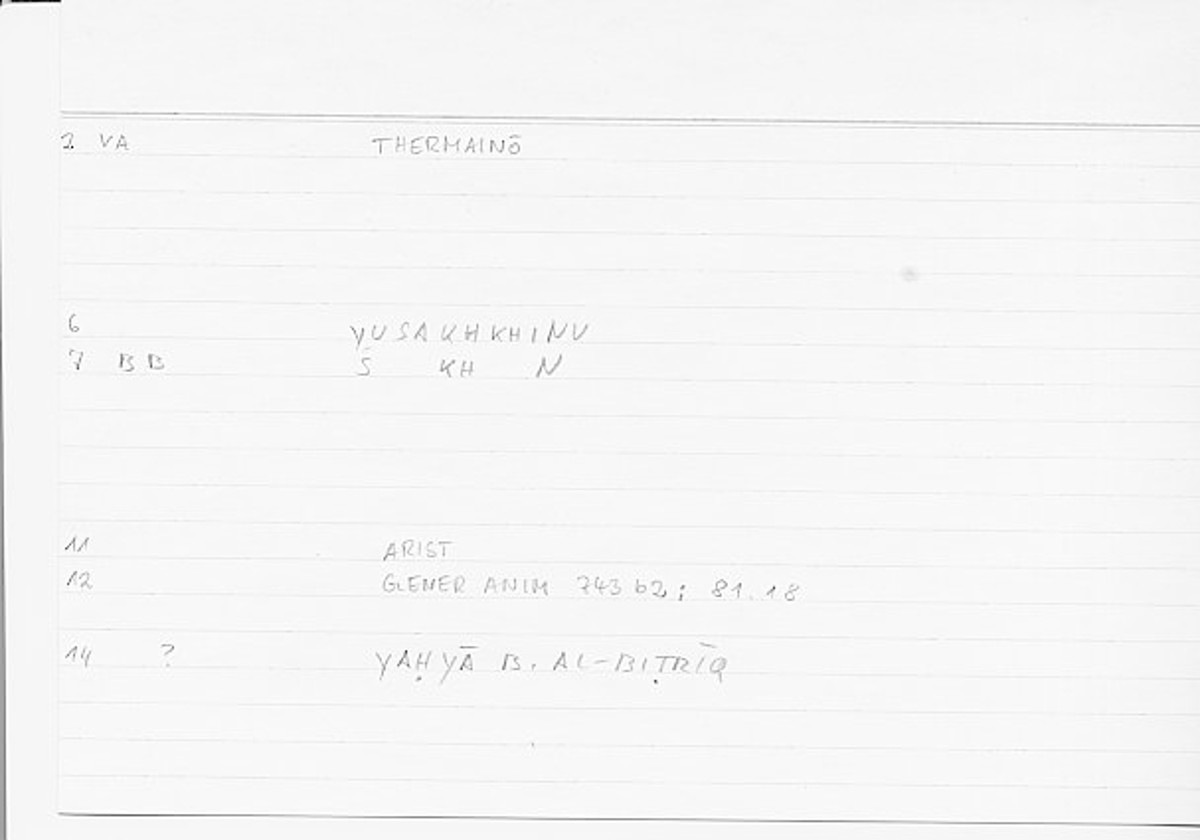 2 VA THERMAINŌ
6 YUSAKHKHINU
7 BB S KH N
11 ARIST
12 GENER ANIM 743 b2; 81.18
14 ? YAḤYĀ B. AL-BIṬRĪQ